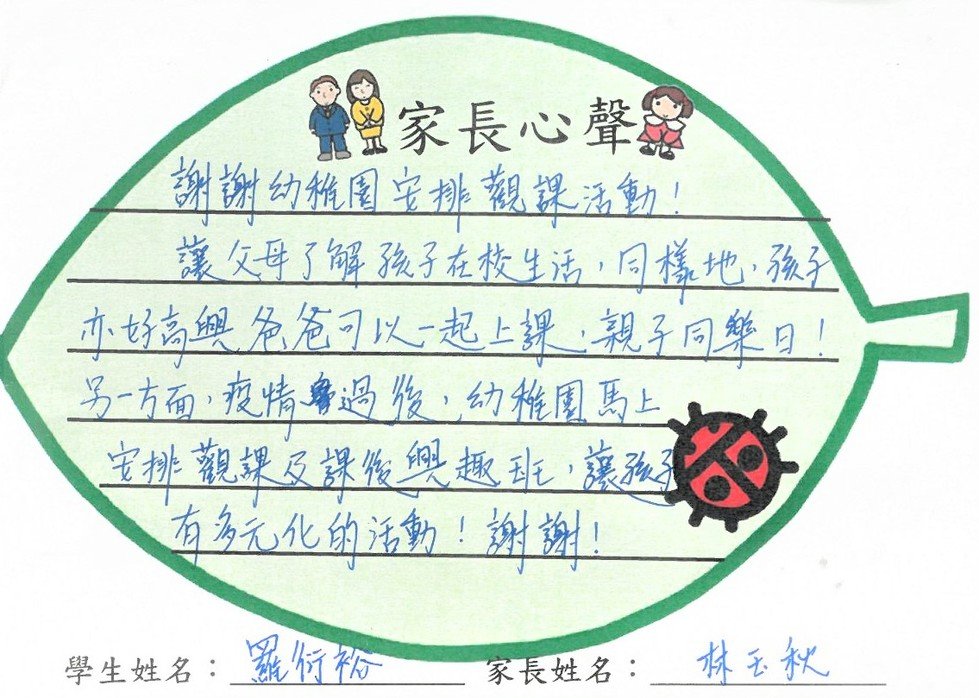 家長心聲
謝謝幼稚園安排觀課活動！
讓父母了解孩子在校生活，同樣地，孩子
亦好高興爸爸可以一起上課，親子同樂日！
另一方面，疫情過後，幼稚園馬上
安排觀課及課後興趣班，讓孩子
有多元化的活動！謝謝！
學生姓名：羅衍裕 家長姓名：林玉秋